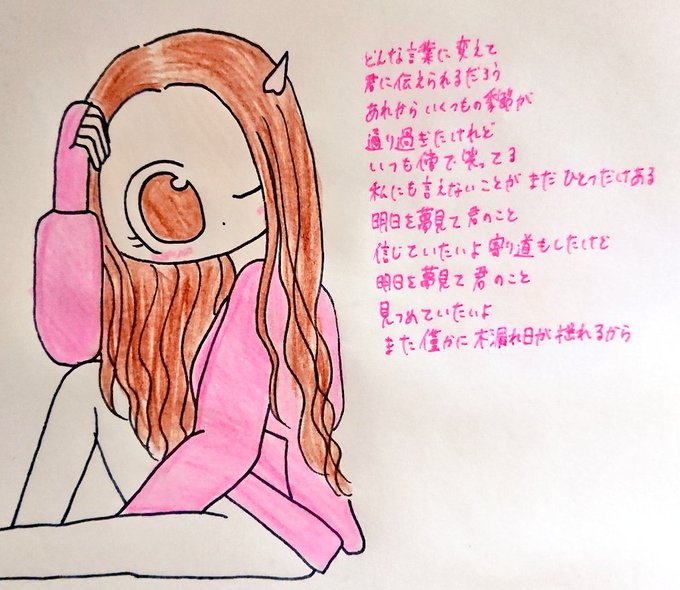 どんな言葉に変えて
君に伝えられるだろう
あれからいくつもの季節が
通り過ぎたけれど
いつも傍で笑ってる
私にも言えないことが まだ ひとつだけある
明日を夢見て 君のこと
信じていたいよ 寄り道もしたけど
明日を夢見て 君のこと
見つめていたいよ
まだ 僅かに 木漏れ日が 揺れるから